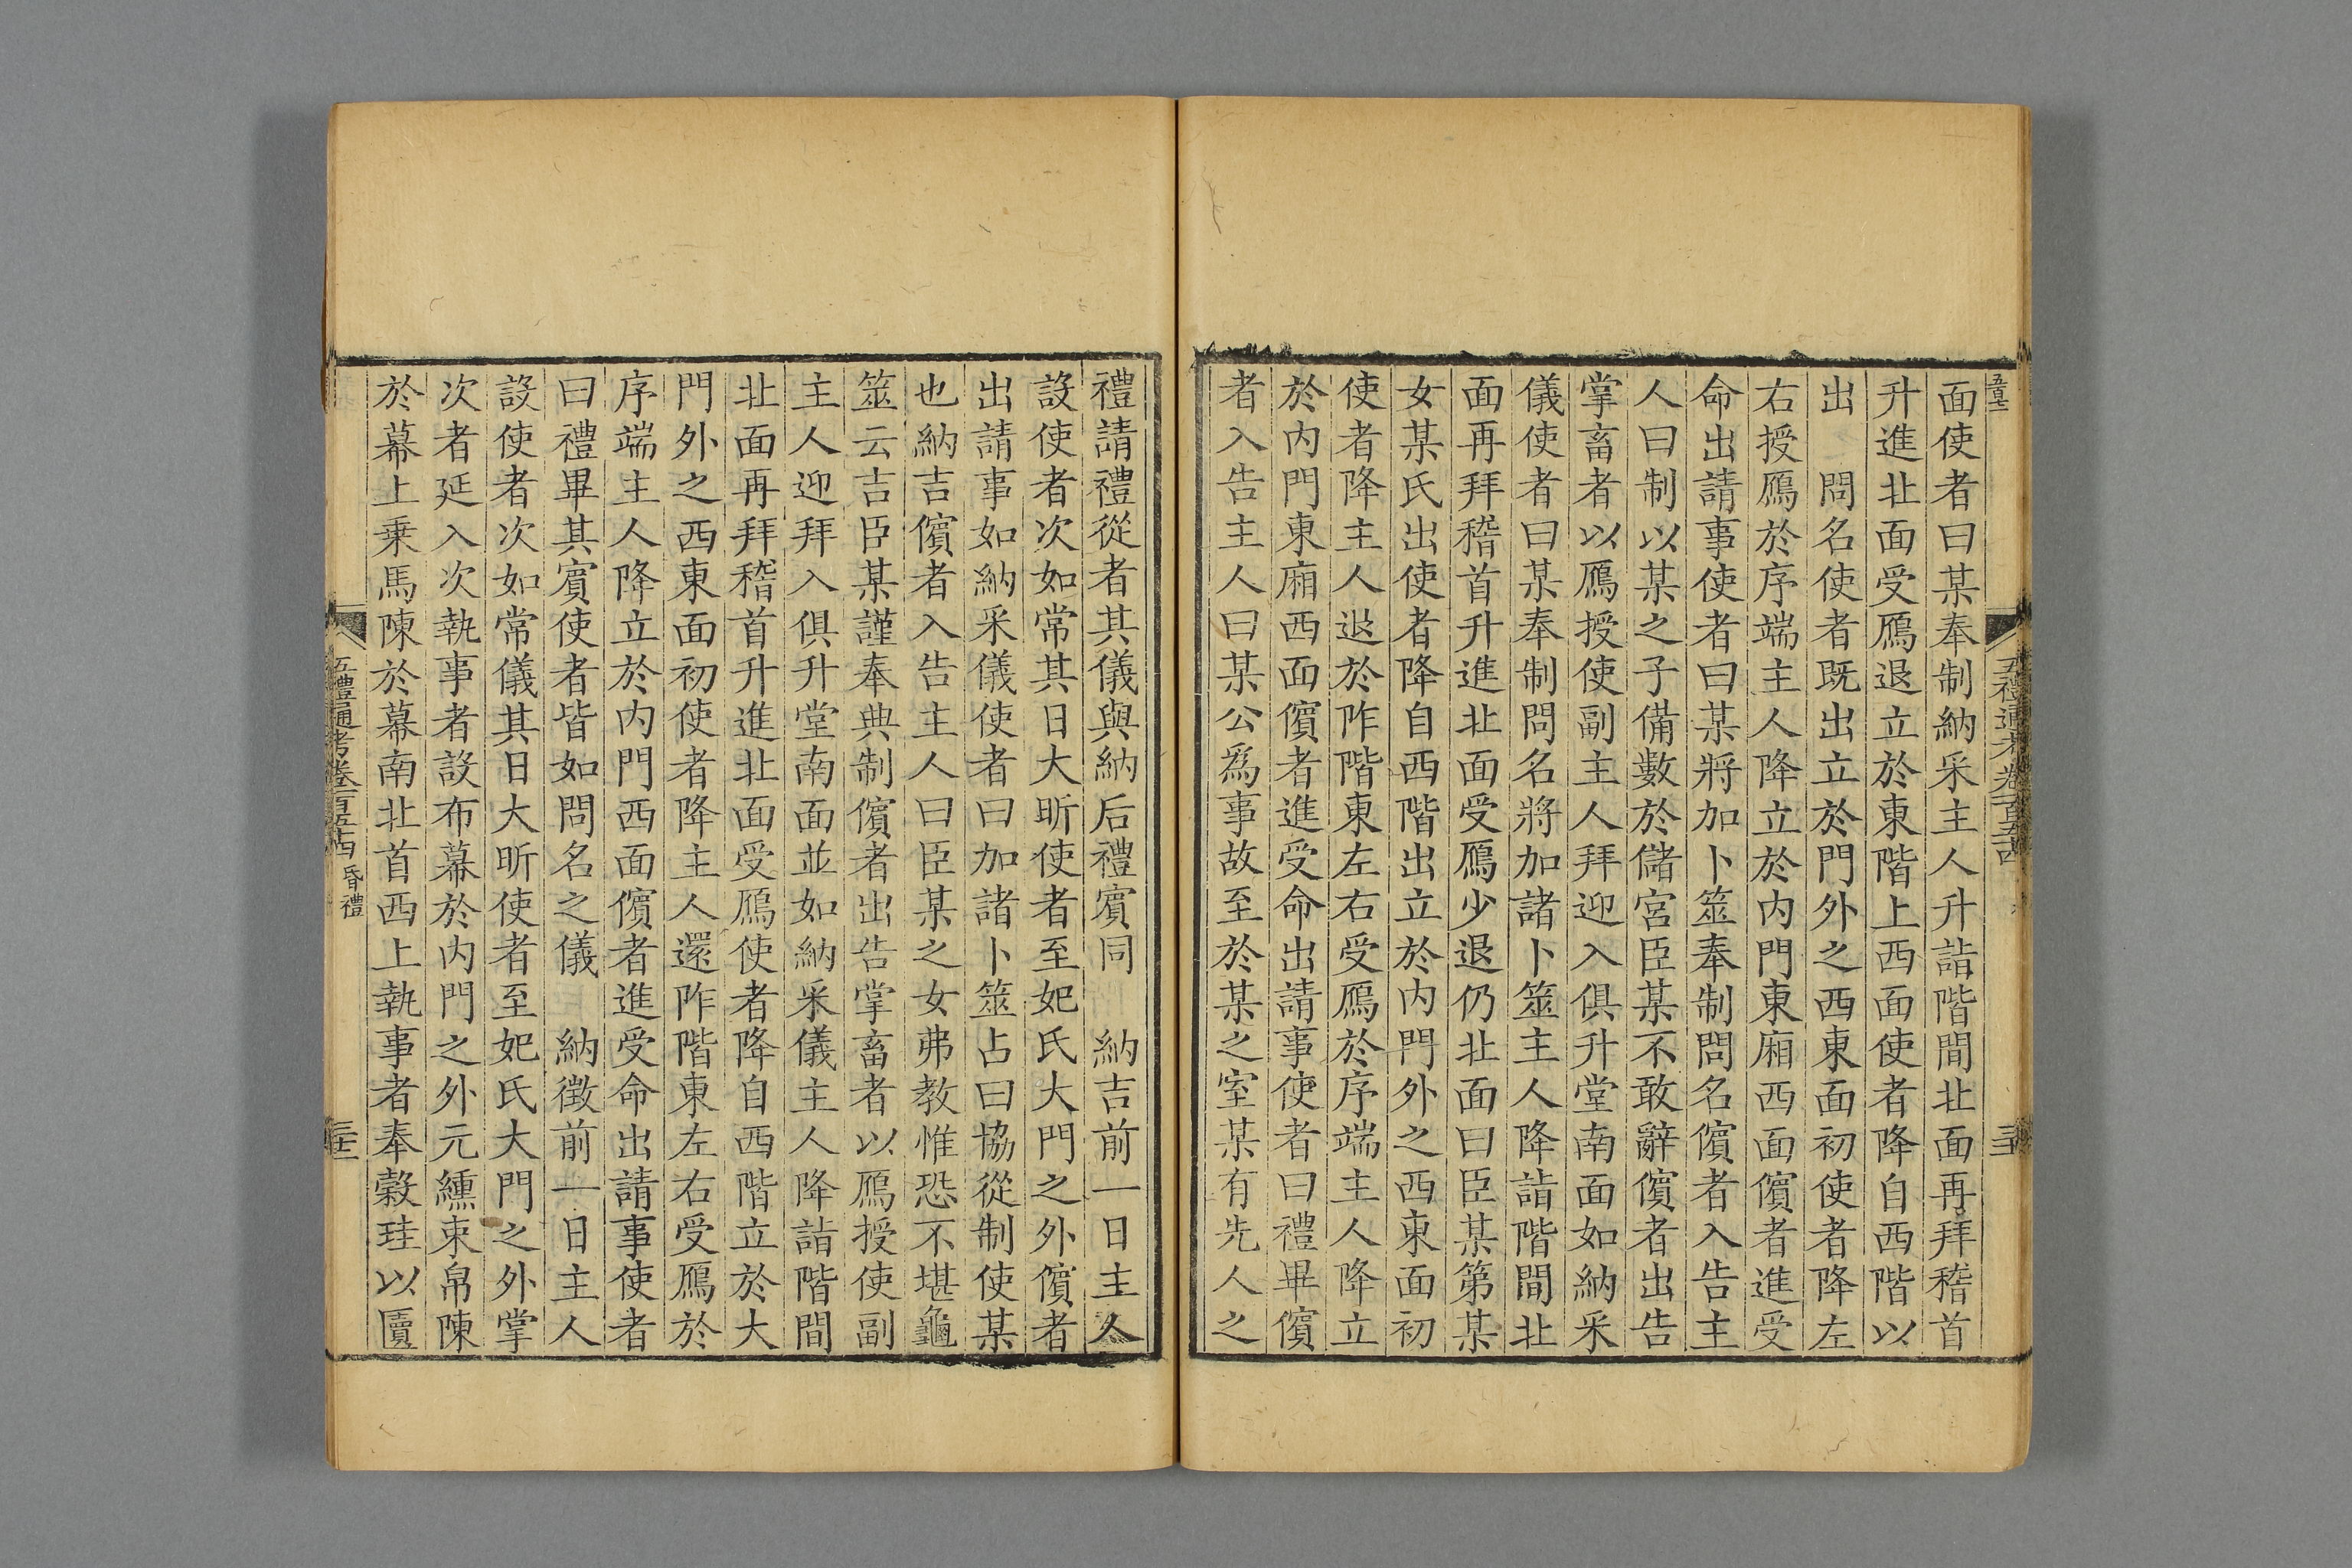 面使者曰某奉制納采主人升詣階間北面再拜稽首
升進北面受鴈退立於東階上西面使者降自西階以
出　問名使者既出立於門外之西東面初使者降左
右授鴈於序端主人降立於內門東廂西面儐者進受
命出請事使者曰某將加卜筮奉制問名儐者入告主
人曰制以某之子備數於儲宮臣某不敢辭儐者出告
掌畜者以鴈授使副主人拜迎入俱升堂南面如納采
儀使者曰某奉制問名將加諸卜筮主人降詣階間北
面再拜稽首升進北面受鴈少退仍北面曰臣某第某
女某氏出使者降自西階出立於內門外之西東面初
使者降主人退於阼階東左右受鴈於序端主人降立
於內門東廂西面儐者進受命出請事使者曰禮畢儐
者入告主人曰某公爲事故至於某之室某有先人之
禮請禮從者其儀與納后禮賓同　納吉前一日主人
設使者次如常其日大昕使者至妃氏大門之外儐者
出請事如納采儀使者曰加諸卜筮占曰協從制使某
也納吉儐者入告主人曰臣某之女弗教惟恐不堪龜
筮云吉臣某謹奉典制儐者出告掌畜者以鴈授使副
主人迎拜入俱升堂南面並如納采儀主人降詣階間
北面再拜稽首升進北面受鴈使者降自西階立於大
門外之西東面初使者降主人還阼階東左右受鴈於
序端主人降立於內門西面儐者進受命出請事使者
曰禮畢其賓使者皆如問名之儀　納徵前一日主人
設使者次如常儀其日大昕使者至妃氏大門之外掌
次者延入次執事者設布幕於內門之外元纁束帛陳
於幕上乘馬陳於幕南北首西上執事者奉穀珪以匵
五禮通考卷一百五十四　昏禮